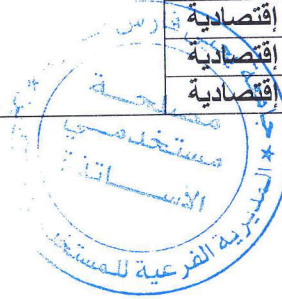 إقتصادية
إقتصادية
إقتصادية
فارس
مصلحة
مستخدمي
الأســاتذة
المديرية الفرعية للمستخد